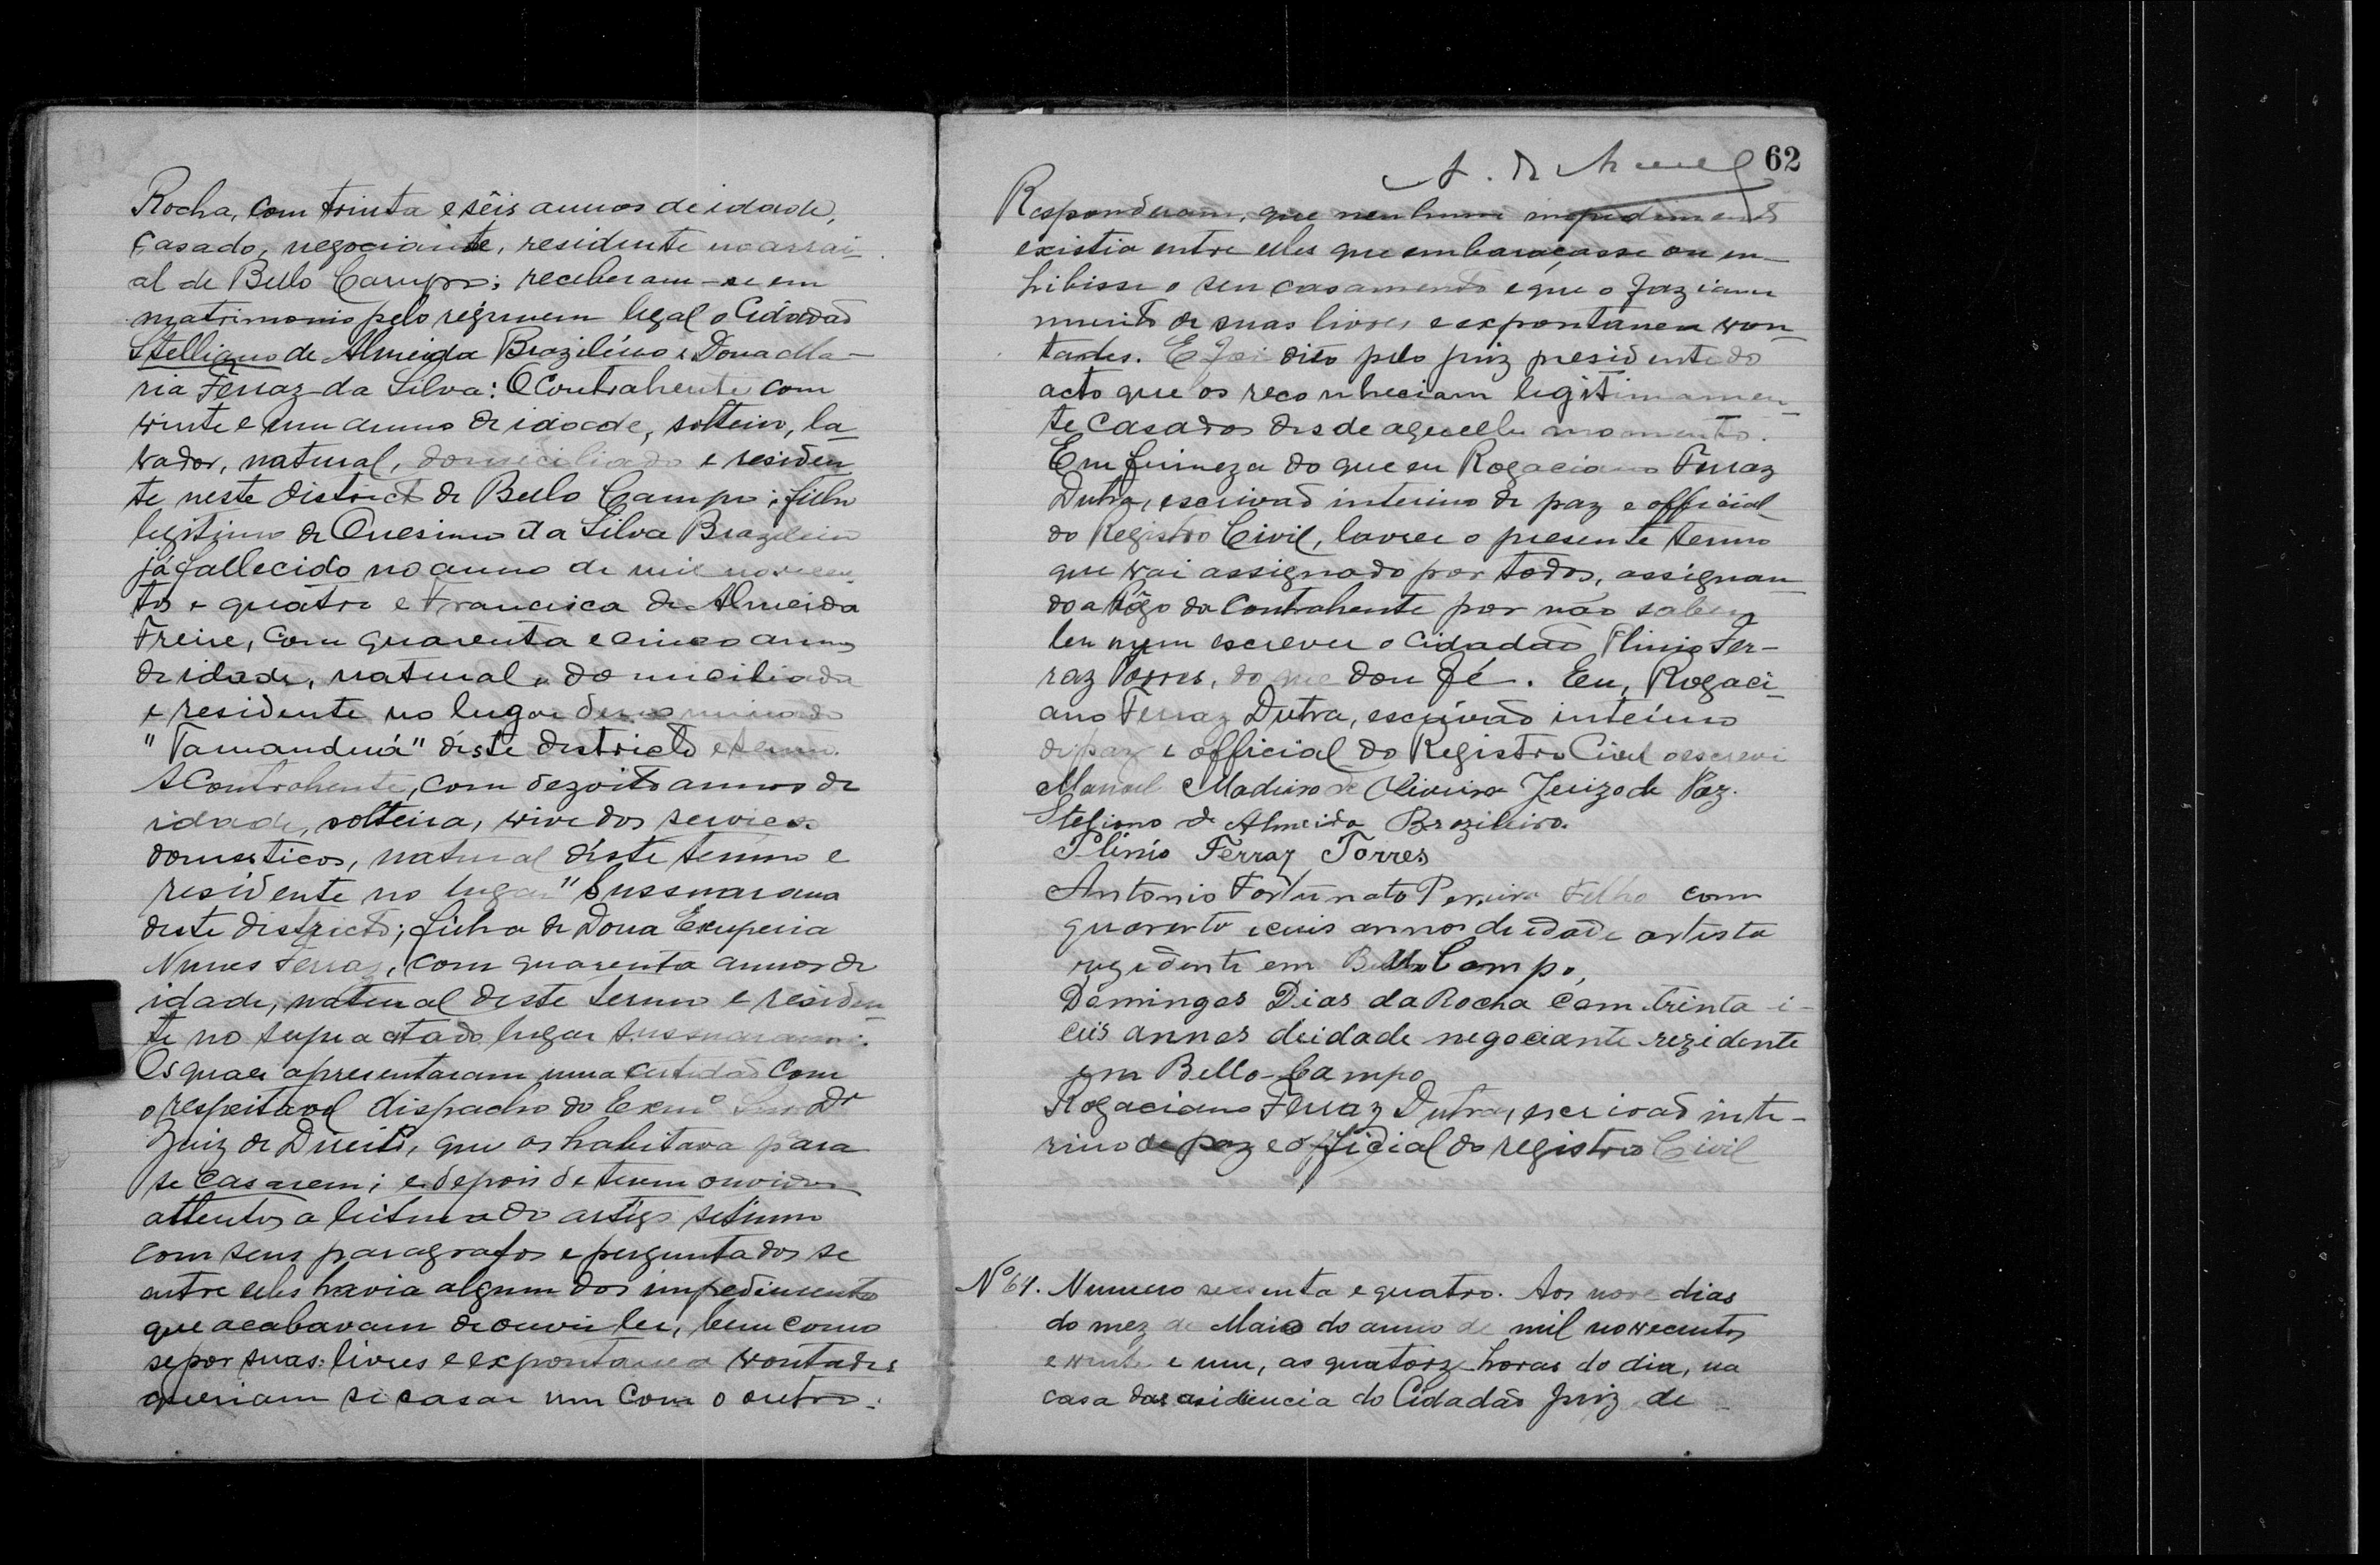 Rocha, com trinta e sêis annos de idade,
casado, negociante, residente no arrai-
al de Bello Campo; receberam-se em
matrimonio pelo regimem legal o Cidadão
Stelliano de Almeida Brazileiro e Dona Ma-
ria Ferraz da Silva: O Contrahente com
vinte e um annos de idade, solteiro, la-
vrador, natural, domiciliado e residen-
te neste districto de Bello Campo; filho
legitimo de Onesimo da Silva Brazileiro
já fallecido no anno de mil novecen-
tos e quatro e Francisca de Almeida
Freire, com quarenta e cinco annos
de idade, natural e domiciliada
e residente no lugar denominado
"Tamanduá" déste districto e termo.
A Contrahente, com dezoito annos de
idade, solteira, vive dos serviços
domesticos, natural déste termo e
residente no lugar "Sussuarana
deste districto; filha de Dona Exuperia
Nunes Ferraz, com quarenta annos de
idade, natural deste termo e residen-
te no supra citado lugar Sussuarana.
Os quaes apresentaram uma certidão com
o respeitavel dispacho do Exmº Snr Dr
Juiz de Direito, que os habitava para
se casarem; e depois de terem ouvidos
attentos a leitura do artigo setimo
com seus paragrafos e perguntados se
entre elles havia algum dos impedimentos
que acabavam de ouvir ler, bem como
se por suas livres e expontanea vontades
queriam se casar um com o outro.
62
Responderam, que nenhum impedimento
existia entre elles que embaraçasse ou in-
hibisse o seu casamento e que o faziam
muito de suas livres e expontanea von-
tades. E foi dito pelo juiz presidente do
acto que os reconheciam legitimamen-
te casados desde aquelle momento.
Em firmeza do que eu Rogaciano Ferraz
Dutra, escrivão interino de paz e official
do Registro Civil, lavrei o presente termo
que vai assignado por todos, assignan-
do a rôgo da contrahente por não saber
ler nem escrever o cidadão Plinio Fer-
raz Torres, do que dou fé. Eu, Rogaci-
ano Ferraz Dutra, escrivão interino
de paz e official do Registro Civil o escrevi
Manoel de Oliveira Juizo de Paz.
Steliano de Almeida Brazileiro.
Plinio Ferraz Torres
Antonio Fortunato Pereira Filho com
quarenta e ceis annos de idade artista
rezidente em Bello Campo,
Domingos Dias da Rocha com trinta i-
ceis annos deidade negociante rezidente
em Bello-Campo
Rogaciano Ferraz Dutra, escrivão inte-
rino de paz e official do registro Civil
Nº 64. Numero secenta e quatro. Aos nove dias
do mez de Maio do anno de mil novecentos
e vinte e um, as quatorze horas do dia, na
casa da residencia do Cidadão Juiz de